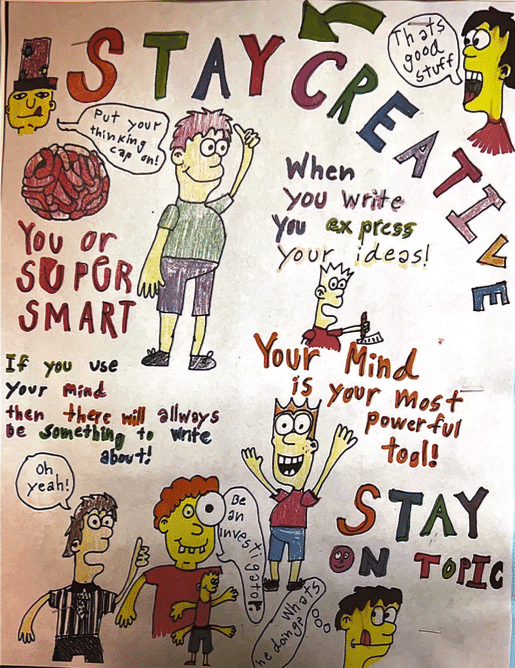 STAY CREATIVE
Thats
good
stuff
Put your
thinking
cap on!
When
you write
you express
your ideas!
You or
SUPER
SMART
Your Mind
is your most
powerful
tool!
If you use
your mind
then there will allways
be something to write
about!
Oh
yeah!
Be
an
investigator
STAY
ON TOPIC
Whats
he doing?